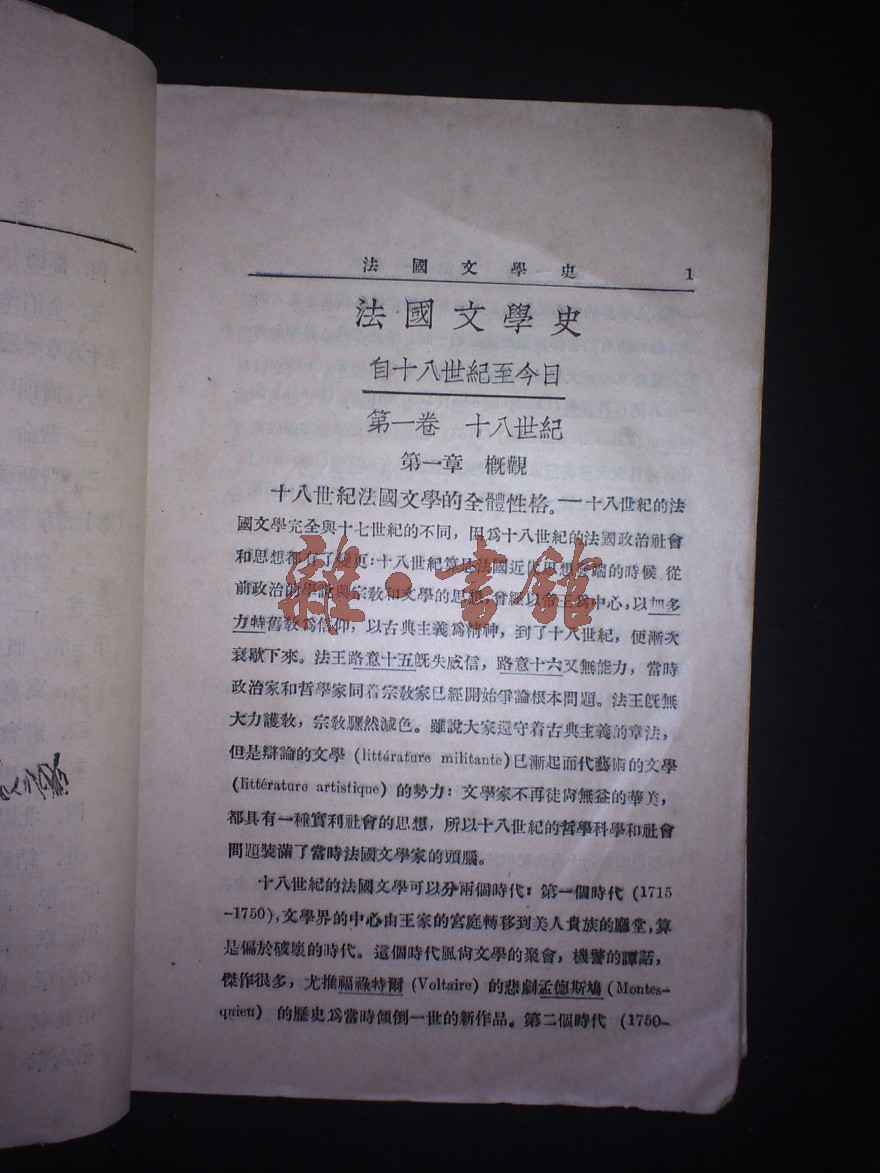 法國文學史 1
法國文學史
自十八世紀至今日
第一卷 十八世紀
第一章 概觀
十八世紀法國文學的全體性格。—十八世紀的法
國文學完全與十七世紀的不同，因爲十八世紀的法國政治社會
和思想都有了變更：十八世紀算是法國近代思想發端的時候 從
前政治的學說與宗教和文學的思想，曾經以帝王爲中心，以加多
力特舊教爲信仰，以古典主義爲精神，到了十八世紀，便漸次
衰歇下來。法王路意十五旣失威信，路意十六又無能力，當時
政治家和哲學家同着宗教家已經開始爭論根本問題。法王旣無
大力護教，宗教驟然減色。雖說大家還守着古典主義的章法，
但是辯論的文學 (littérature militante) 已漸起而代藝術的文學
(littérature artistique) 的勢力：文學家不再徒尙無益的華美，
都具有一種實利社會的思想，所以十八世紀的哲學科學和社會
問題裝滿了當時法國文學家的頭腦。
十八世紀的法國文學可以分兩個時代：第一個時代 (1715
-1750)，文學界的中心由王家的宮庭轉移到美人貴族的廳堂，算
是偏於破壞的時代。這個時代風尙文學的聚會，機警的譚話，
傑作很多，尤推福祿特爾 (Voltaire) 的悲劇孟德斯鳩 (Montes-
quieu) 的歷史爲當時傾倒一世的新作品。第二個時代 (1750-
雜·書館